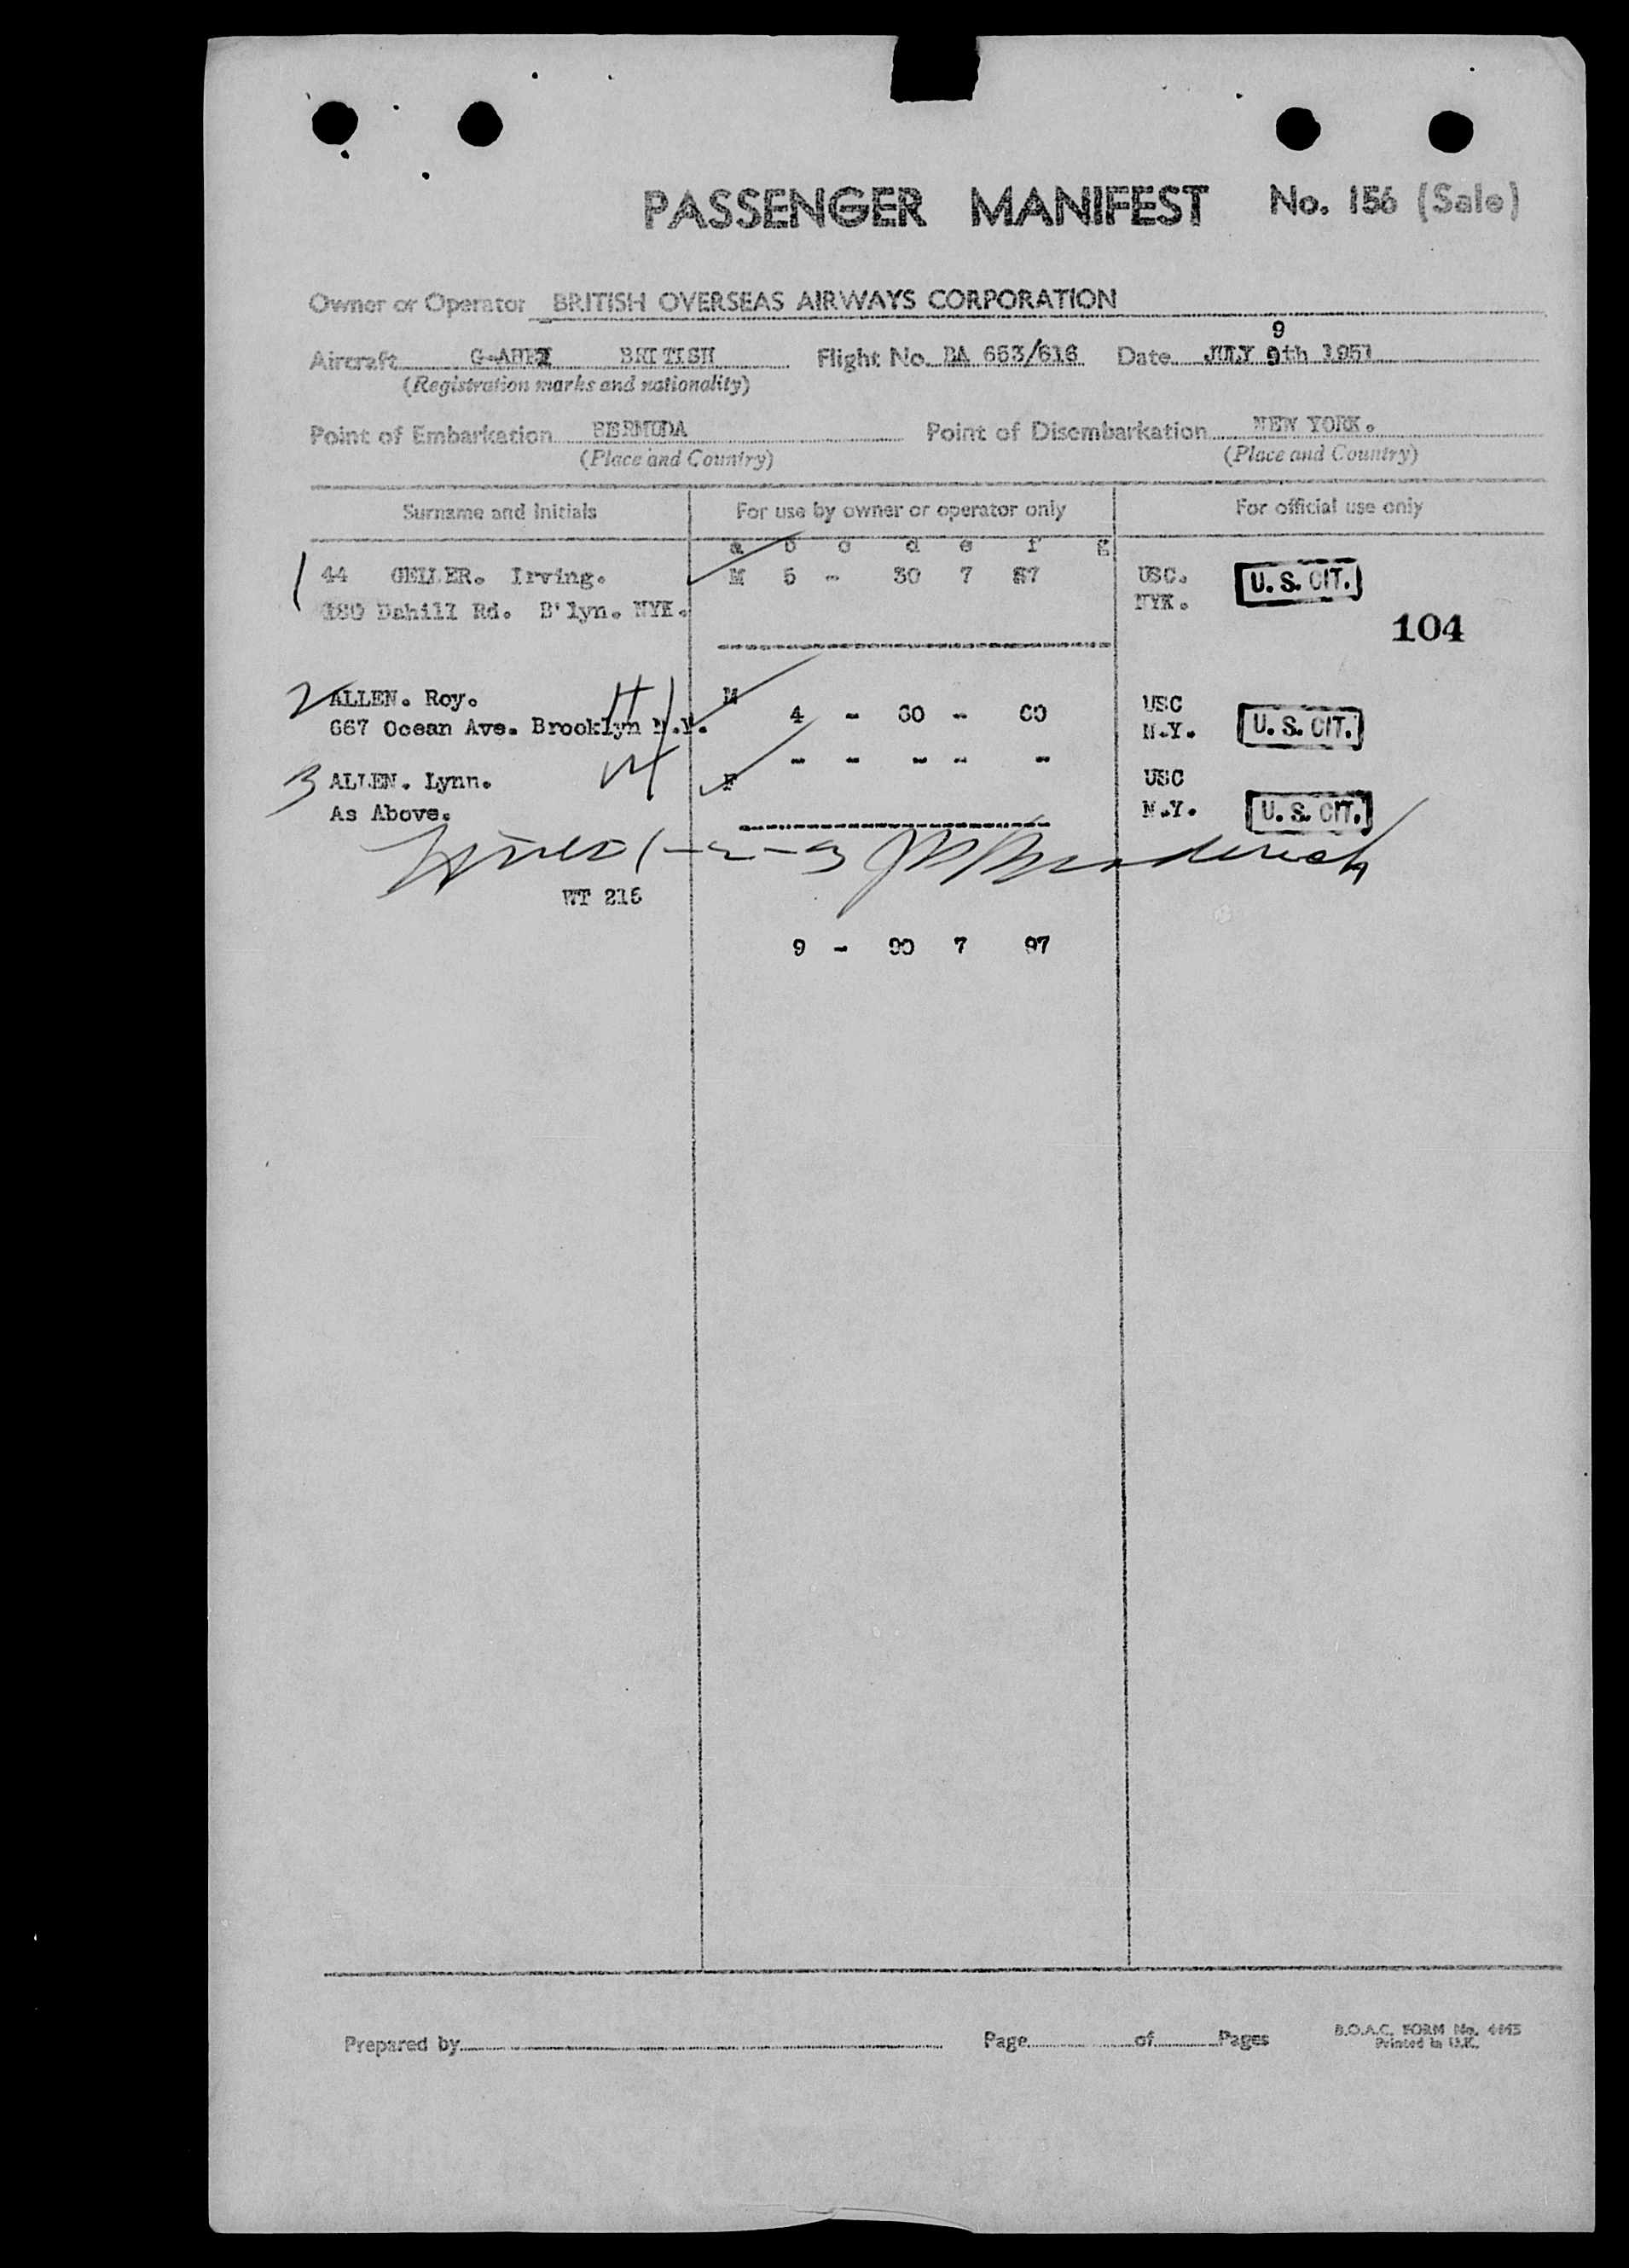 PASSENGER MANIFEST No. 156 (Sale)
Owner or Operator BRITISH OVERSEAS AIRWAYS CORPORATION
9
Aircraft BRITISH Flight No. BA 653/616 Date JULY 9th 1951
(Registration marks and nationality)
Point of Embarkation BERMUDA Point of Disembarkation NEW YORK.
(Place and Country) (Place and Country)
Surname and Initials For use by owner or operator only For official use only
a b c d e f g
1 44 GELLER. Irving. M 5 - 30 7 37 USC. U. S. CIT.
480 Dahill Rd. B'lyn. NYK. NYK.
104
2 ALLEN. Roy. M USC
667 Ocean Ave. Brooklyn N.Y. 4 - 60 - 60 N.Y. U. S. CIT.
- - - - -
3 ALLEN. Lynn. F USC
As Above. N.Y. U. S. CIT.
1-2-3
WT 216
9 - 90 7 97
Prepared by Page of Pages B.O.A.C. FORM No.
Printed in U.K.